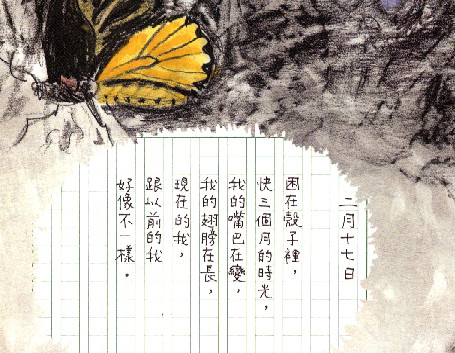 二月十七日
困在殼子裡，
快三個月的時光，
我的嘴巴在變，
我的翅膀在長，
現在的我，
跟以前的我
好像不一樣。